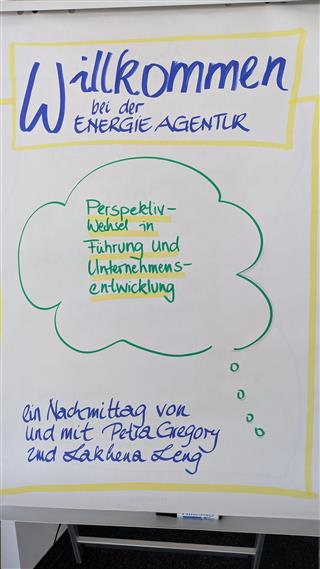 Willkommen
bei der
ENERGIE AGENTUR
Perspektiv-
Wechsel in
Führung und
Unternehmens-
entwicklung
ein Nachmittag von
und mit Petra Gregory
und Lakhena Leng